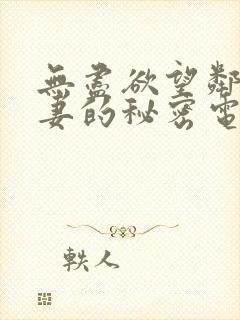 無盡欲望鄰
妻的秘密電
軼人